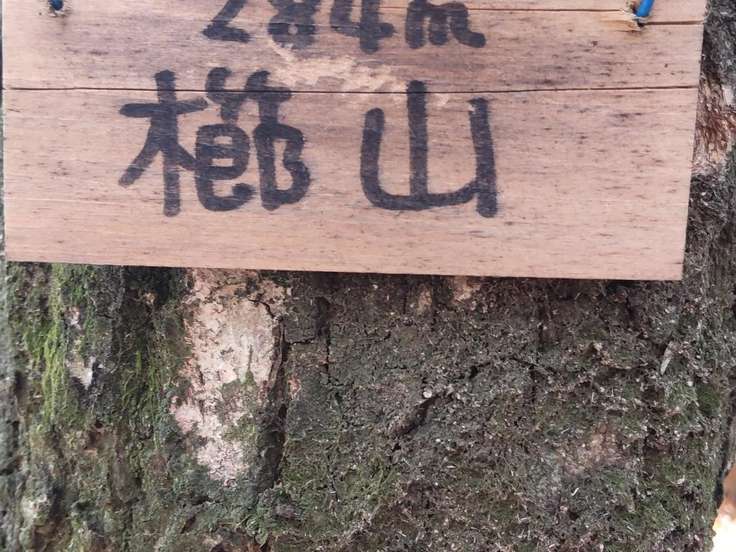 284m
櫛山